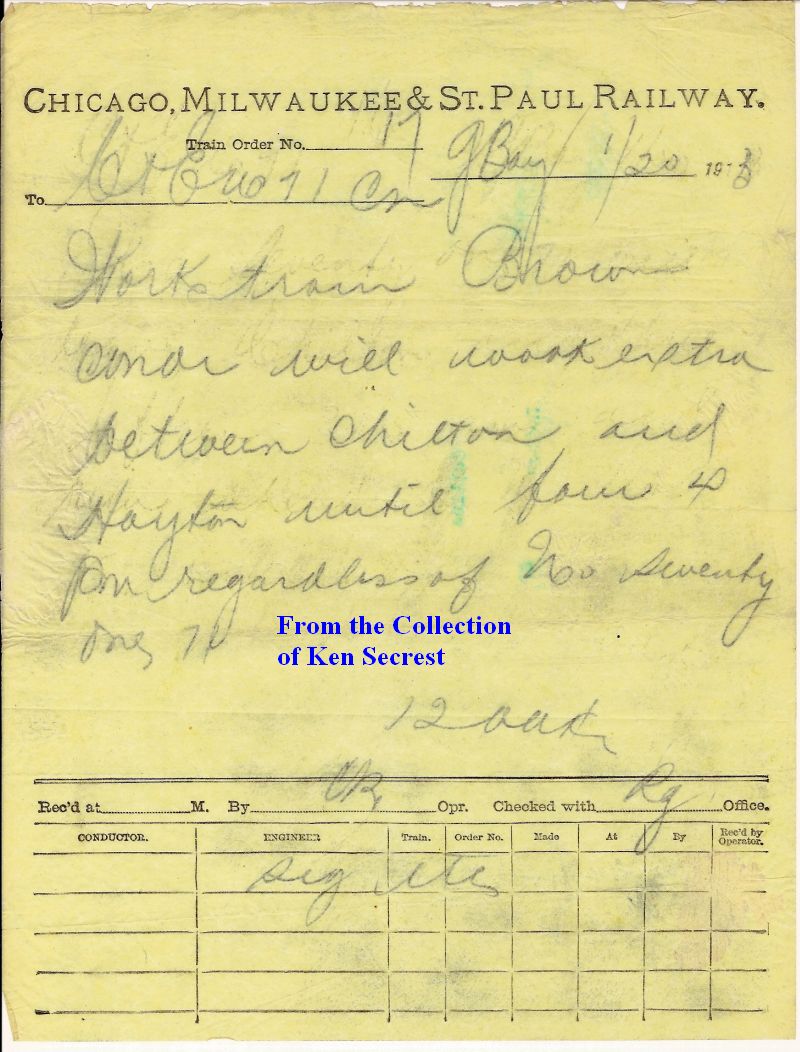 CHICAGO, MILWAUKEE & ST. PAUL RAILWAY.
Train Order No. 17 GBay 1/20 191
To C & E No 71 Cn
Work train Brown
Condr will work extra
between Chilton and
Hayton until four 4
Pm regardless of No seventy
one 71
From the Collection
of Ken Secrest
12
Rec'd at M. By Opr. Checked with Office.
CONDUCTOR. ENGINEER Train. Order No. Made At By Rec'd by Operator.
Sig